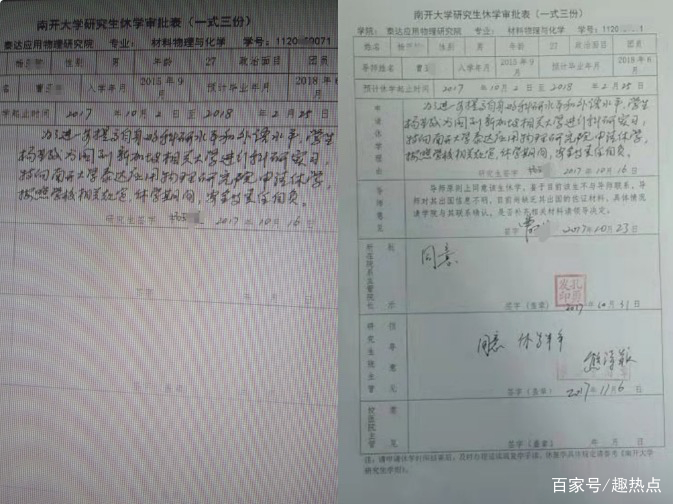 南开大学研究生休学审批表（一式三份）
泰达应用物理研究院 专业： 材料物理与化学 学号：1120 59071
姓名 杨 性别 男 年龄 27 政治面目 团员
曹 入学年月 2015年9月 预计毕业年月 2018年6月
学起止时间 2017 年 10 月 2 日至 2018 年 2 月 25 日
为了进一步提高自身的科研水平和外语水平，学生
杨 欲为 间到新加坡相关大学进行科研实习，
特向南开大学泰达应用物理研究院申请休学，
按照学校相关规定，休学期间，
研究生签字 2017 年 10 月 16 日
南开大学研究生休学审批表（一式三份）
学院： 泰达应用物理研究院 专业： 材料物理与化学 学号：1120 1
姓名 杨 性别 男 年龄 27 政治面目 团员
导师姓名 曹 入学年月 2015年9月 预计毕业年月 2018年6月
预计休学起止时间 2017 年 10 月 2 日至 2018 年 2 月 25 日
申请休学理由
为了进一步提高自身的科研水平和外语水平，学生
杨 欲为 间到新加坡相关大学进行科研实习，
特向南开大学泰达应用物理研究院申请休学，
按照学校相关规定，休学期间，
研究生签字 2017 年 10 月 16 日
导师意见
导师原则上同意该生休学，鉴于目前该生不与导师联系，导
师对其出国信息不明，目前尚缺乏其出国的佐证材料，具体情况
请学院与其联系确认，是否补充相关材料请领导决定。
签字 曹 2017年10月23日
所在院系主管院长
同意
签字（盖章） 2017年10月31日
研究生院主管意见
同意 休学半年
签字（盖章） 2017年11月6日
校医院主管意见
签字（盖章） 年 月 日
百家号/趣热点